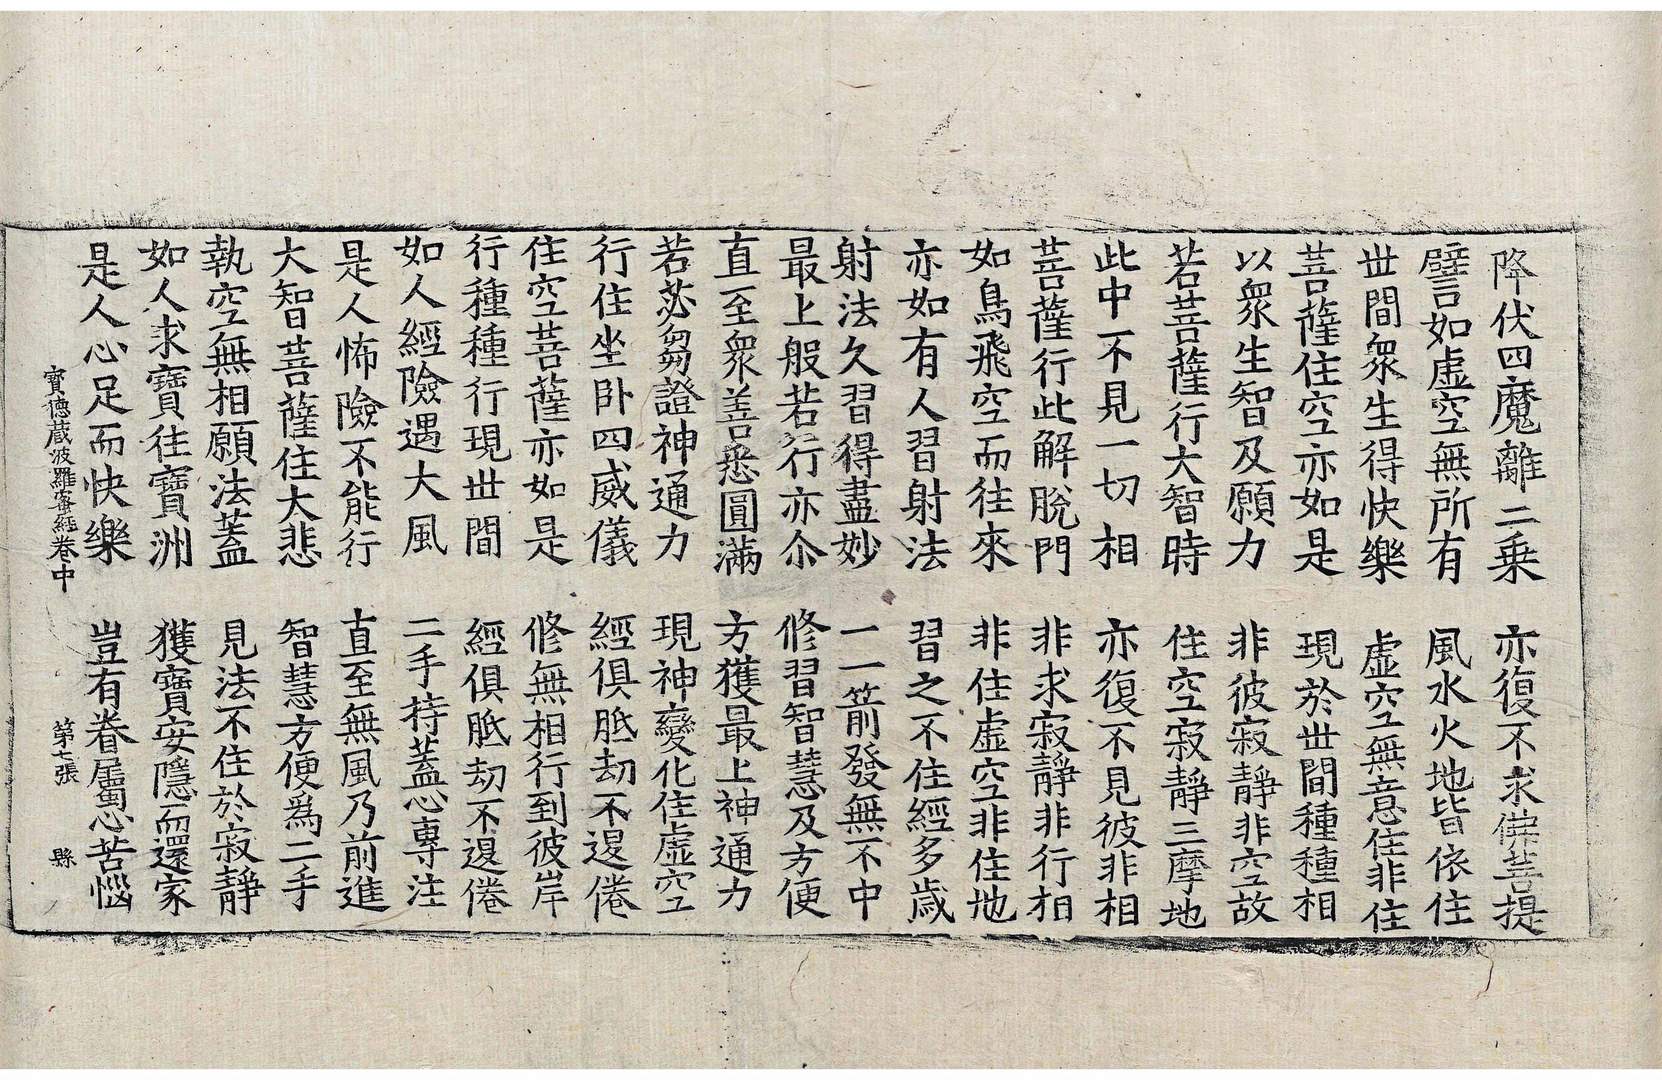 降伏四魔離二乗　亦復不求佛菩提
譬如虛空無所有　風水火地皆依住
世間衆生得快樂　虛空無意住非住
菩薩住空亦如是　現於世間種種相
以衆生智及願力　非彼寂靜非空故
若菩薩行大智時　住空寂靜三摩地
此中不見一切相　亦復不見彼非相
菩薩行此解脫門　非求寂靜非行相
如鳥飛空而往來　非住虛空非住地
亦如有人習射法　習之不住經多歲
射法久習得盡妙　一一箭發無不中
最上般若行亦尒　修習智慧及方便
直至衆善悉圓滿　方獲最上神通力
若苾芻證神通力　現神變化住虛空
行住坐卧四威儀　經俱胝劫不退倦
住空菩薩亦如是　修無相行到彼岸
行種種行現世間　經俱胝劫不退倦
如人經險遇大風　二手持蓋心專注
是人怖險不能行　直至無風乃前進
大智菩薩住大悲　智慧方便為二手
執空無相願法蓋　見法不住於寂靜
如人求寶往寶洲　獲寶安隱而還家
是人心足而快樂　豈有眷屬心苦惱
寶德蔵波羅蜜經卷中　第七張　縣